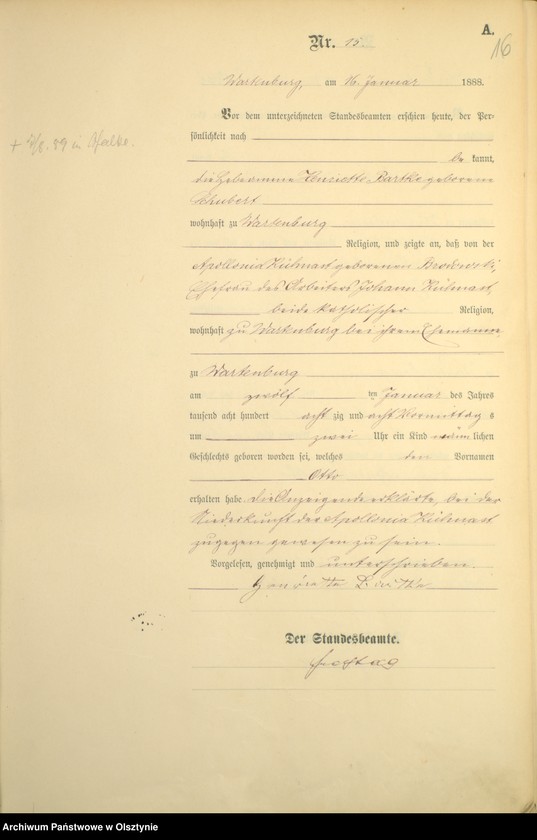 A.
16
Nr. 15.
Wartenburg, am 16. Januar 1888.
Vor dem unterzeichneten Standesbeamten erschien heute, der Per-
sönlichkeit nach
be kannt,
die Hebeamme Henriette Bartke geborene
Schubert
wohnhaft zu Wartenburg
Religion, und zeigte an, daß von der
Apollonia Kühnast geborenen
Ehefrau des Arbeiters Johann Kühnast
beide katholischer Religion,
wohnhaft zu Wartenburg bei ihrem Ehemanne
zu Wartenburg
am zwölf ten Januar des Jahres
tausend acht hundert acht zig und acht Vormittag s
um zwei Uhr ein Kind männ lichen
Geschlechts geboren worden sei, welches den Vornamen
Otto
erhalten habe die Anzeigende erklärte, bei der
Niederkunft der Apollonia Kühnast
zugegen gewesen zu sein.
Vorgelesen, genehmigt und unterschrieben.
Henriette Bartke
Der Standesbeamte.
+ 59 in
Archiwum Państwowe w Olsztynie